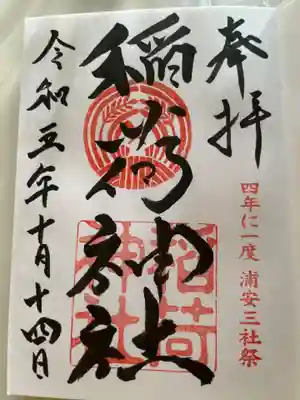 奉拝
四年に一度 浦安三社祭
稲荷神社
稲荷神社
令和五年十月十四日